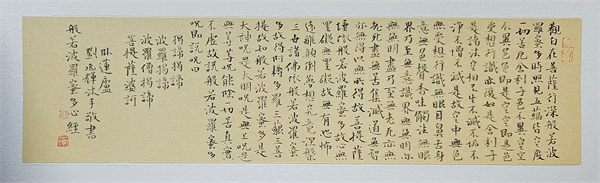 觀自在菩薩行深般若波
羅蜜多時照見五蘊皆空度
一切苦厄舍利子色不異空空
不異色色即是空空即是色
受想行識亦復如是舍利子
是諸法空相不生不滅不垢不
淨不增不減是故空中無色
無受想行識無眼耳鼻舌身
意無色聲香味觸法無眼
界乃至無意識界無無明亦
無無明盡乃至無老死亦無
老死盡無苦集滅道無智
亦無得以無所得故菩提薩
埵依般若波羅蜜多故心無
罣礙無罣礙故無有恐怖
遠離顛倒夢想究竟涅槃
三世諸佛依般若波羅蜜
多故得阿耨多羅三藐三菩
提故知般若波羅蜜多是
大神咒是大明咒是無上咒是
無等等咒能除一切苦真實
不虛故說般若波羅蜜多
咒即說咒曰
揭諦揭諦
波羅揭諦
波羅僧揭諦
菩提薩婆訶
卧蓮廬
劉兆輝沐手敬書
般若波羅蜜多心經